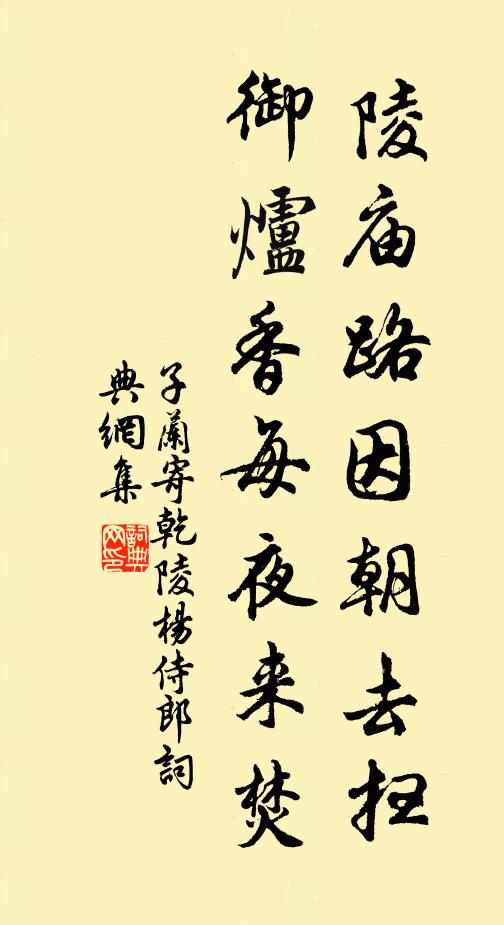 陵庙路因朝去扫
御爐香每夜来焚
子蘭寄乾陵楊侍郎詞
典網集
詞典
网印